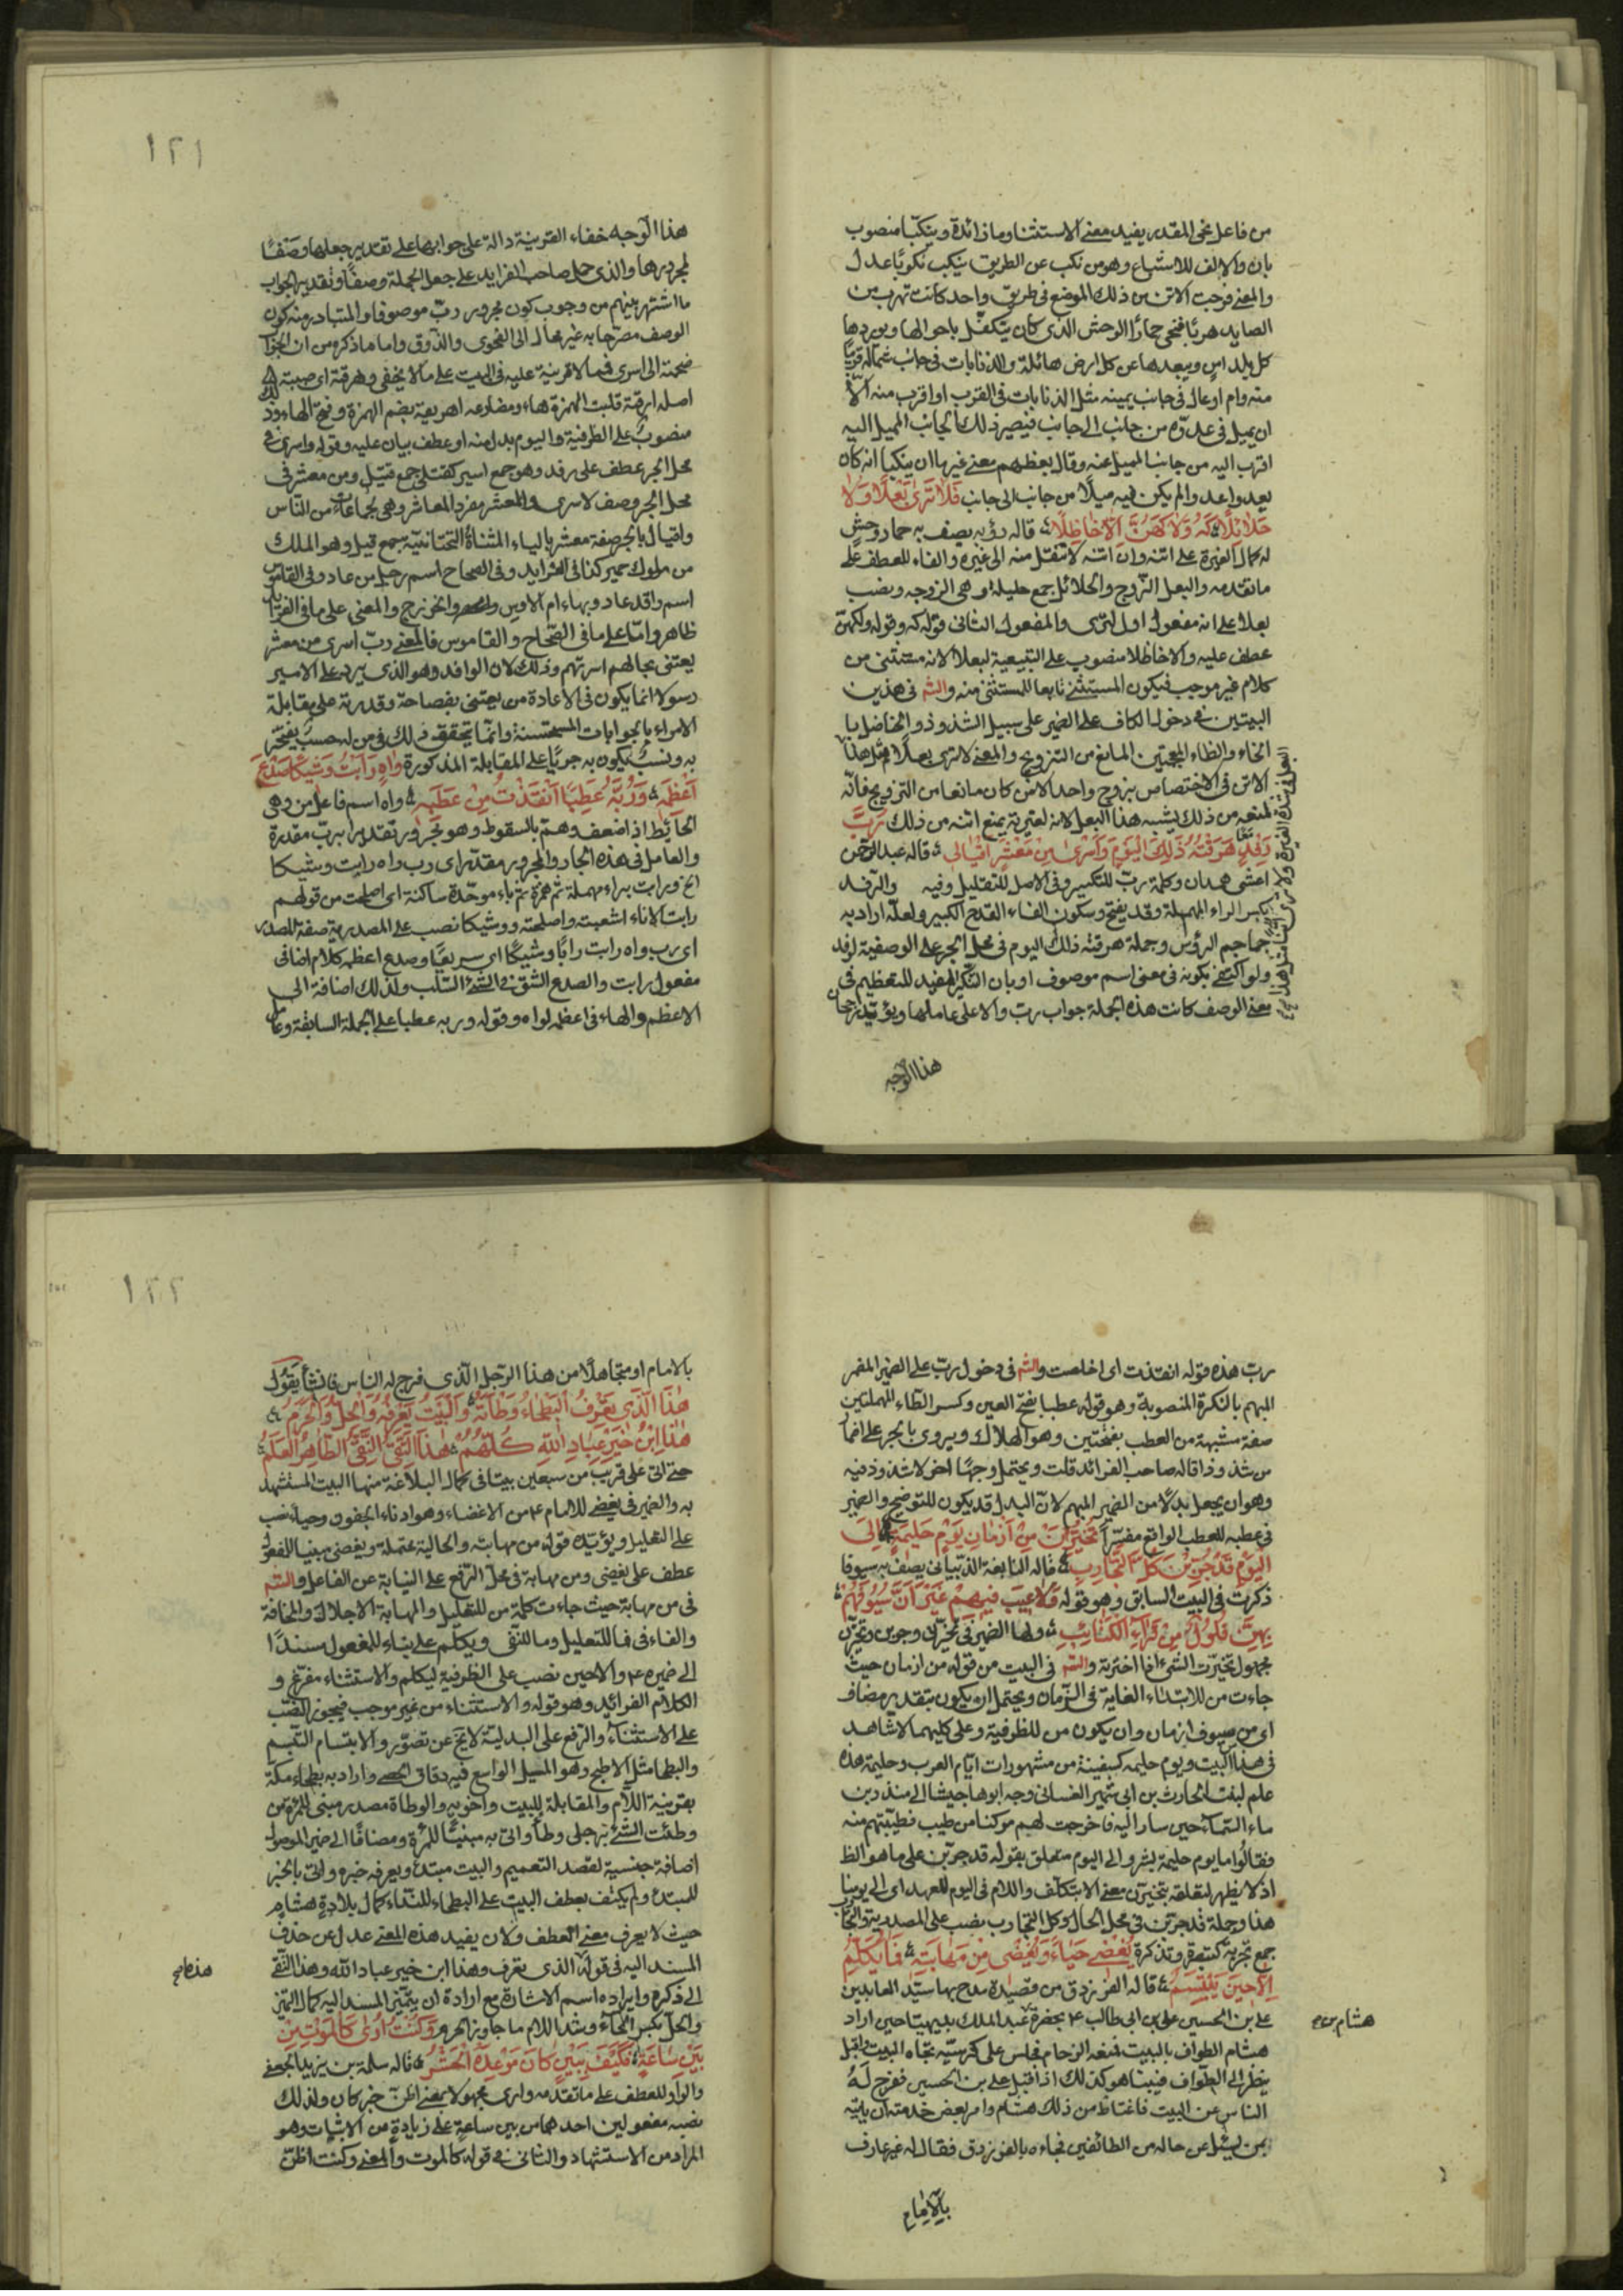 من فاعل نحى المقدر يفيد معنى الاستثنا وما زائدة وينكبا منصوب
بان والالف للاشباع وهو من نكب عن الطريق ينكب نكوبا عدل
والمعنى فرجت الاتن من ذلك الموضع فى طريق واحد كانت تهرب من
الصايد هربا فنحى حمار الوحش الذى كان يتكفل باحوالها ويوردها
كل بلد اس ويبعدها عن كل ارض هائلة والذنابات فى جانب شماله قريبا
منه وام اوعال فى جانب يمينه مثل الذنابات فى القرب او اقرب منه الا
ان يميل فى عدوه من جانب الى جانب فيصير ذلك الجانب المميل اليه
اقرب اليه من جانب المميل عنه وقال بعضهم معنى غيرها ان ينكبا انه كان
يعدو اعدوا لم يكن فيه ميلا من جانب الى جانب فلا ترى بعلا ولا
حلائلا كه ولا كهن الا حاظلا قاله رؤبه يصف به حمار وحش
له كمال الغيرة على اتنه وان اتنه لا تنتقل منه الى غيره والفاء للعطف على
ما تقدمه والبعل الزوج والحلائل جمع حليلة وهى الزوجه ونصب
بعلا على انه مفعول اول لترى والمفعول الثانى قوله كه وقوله ولا كهن
عطف عليه والا حاظلا منصوب على التبعية لبعلا لانه مستثنى من
كلام غير موجب فيكون المستثنى تابعا للمستثنى منه والشم فى هذين
البيتين فى دخول الكاف على الضمير على سبيل الشذوذ والحاظل با
الحاء والظاء المعجمتين المانع من التزويج والمعنى لا ترى بعلا مثل هذا
الاتن فى الاختصاص بزوج واحد الا من كان مانعا من التزويج فانه
لمنعه من ذلك يشبه هذا البعل لانه لغيرته يمنع اتنه من ذلك رب
رفد هرقته ذلك اليوم واسرى من معشر اقيال قاله عبد الرحمن
اعشى همدان وكلمة رب للتكسير وفى الاصل للتقليل وفيه والرفد
بكسر الراء المهملة وقد يفتح وسكون الفاء القدح الكبير ولعله اراد به
جماجم الرؤس وجملة هرقته ذلك اليوم فى محل الجر على الوصفية لرفد
ولو اكتفى بكونه فى معنى اسم موصوف او بان التنكير المفيد للتعظيم فى
معنى الوصف كانت هذه الجملة جواب رب والا على عاملها ويؤيد رجحان
هذا الوجه
١٢١
هذا الوجه خفاء القرينة دالة على جوابها على تقدير جعلها وصفا
لمجرورها والذى حمل صاحب الفرايد على جعل الجملة وصفا وتقدير الجواب
ما اشتهر بينهم من وجوب كون مجرور رب موصوفا والمتبادر منه كون
الوصف مصرحا به غير محال الى الفحوى والذوق واما ما ذكره من ان الجواب
ضممته الى اسرى فمما لا قرينة عليه فى البيت على ما لا يخفى وهرقته اى صببته
اصله ارقته قلبت الهمزة هاء ومضارعه اهريقه بضم الهمزة وفتح الهاء وذلك
منصوب على الظرفية واليوم بدل منه او عطف بيان عليه وقوله واسرى فى
محل الجر عطف على رفد وهو جمع اسير كقتلى جمع قتيل ومن معشر فى
محل الجر وصف لاسرى والمعشر مفرد المعاشر وهى جماعات من الناس
واقيال بالجر صفة معشر بالياء المثناة التحتانية جمع قيل وهو الملك
من ملوك حمير كذا فى الفرايد وفى الصحاح اسم رجل من عاد وفى القاموس
اسم وافد عاد وبهاء ام الاوس والخزرج والمعنى على ما فى الفرايد
ظاهر واما على ما فى الصحاح والقاموس فالمعنى رب اسرى من معشر
يعتنى بحالهم اسرتهم وذلك لان الوافد وهو الذى يرد على الامير
رسولا انما يكون فى الاعادة من يعتنى بفصاحته وقدرته على مقابلة
الامراء بالجوابات المستحسنة وانما يتحقق ذلك فى من له حسب يفتخر
به ونسب يكون به جريا على المقابلة المذكورة واه رابت وشيكا صدع
اعظمه وربه عطبا انقذت من عطبه واه اسم فاعل من وهى
الحائط اذا ضعف وهم بالسقوط وهو مجرور تقديرا برب مقدرة
والعامل فى هذه الجار والمجرور مقدر اى رب واه رابت وشيكا
الخ ورابت براء مهملة ثم همزة ثم باء موحدة ساكنة اى اصلحت من قولهم
رابت الاناء اشعبته واصلحته ووشيكا نصب على المصدرية صفة للمصدر
اى رب واه رابت رابا وشيكا اى سريعا وصدع اعظمه كلام اضافى
مفعول رابت والصدع الشق فى الشئ الصلب ولذلك اضافه الى
الاعظم والهاء فى اعظمه لواه وقوله وربه عطبا على الجملة السابقة وعامل
رب هذه قوله انقذت اى اخلصت والشم فى دخول رب على الضمير المفر
المبهم بالنكرة المنصوبة وهو قوله عطبا بفتح العين وكسر الطاء المهملتين
صفة مشبهة من العطب بفتحتين وهو الهلاك ويروى بالجر على اضمار
من شذوذا قاله صاحب الفرائد قلت ويحتمل وجها اخر لا شذوذ فيه
وهو ان يجعل بدلا من الضمير المبهم لان البدل قد يكون للتوضيح والضمير
فى عطبه للعطب الواقع مفسرا تخيرن من ازمان يوم حليمة الى
اليوم قد جربن كل التجارب قاله النابغة الذبيانى يصف به سيوفا
ذكرت فى البيت السابق وهو قوله ولا عيب فيهم غير ان سيوفهم
بهن فلول من قراع الكتائب ولها الضمير فى تخيرن وجربن وتخيرن
مجهول تخيرت الشئ اذا اخترته والشم فى البيت من قوله من ازمان حيث
جاءت من للابتداء الغاية فى الزمان ويحتمل ان يكون بتقدير مضاف
اى من سيوف ازمان وان يكون من للظرفية وعلى كليهما لا شاهد
فى هذا البيت ويوم حليمه كسفينة من مشهورات ايام العرب وحليمة هذه
علم لبنت الحارث بن ابى شمير الغسانى وجه ابوها جيشا الى منذر بن
ماء السماء حين سار اليه فاخرجت لهم مركنا من طيب فطيبتهم منه
فقالوا ما يوم حليمة بسر والى اليوم متعلق بقوله قد جربن على ما هو الظ
اذ لا يظهر لتعلقه بتخيرن معنى الا بتكلف واللام فى اليوم للعهد اى الى يومنا
هذا وجملة قد جربن فى محل الحال وكل التجارب نصب على المصدرية والتجارب
جمع تجربة كتبصرة وتذكرة يغضى حياء ويغضى من مهابته فما يكلم
الا حين يبتسم قاله الفرزدق من قصيدة مدح بها سيد العابدين
على بن الحسين على بن ابى طالب ع بحضرة عبد الملك بديهيتا حين اراد
هشام بن صح
هشام الطواف بالبيت فمنعه الزحام فجلس على كرسيه تجاه البيت واقبل
ينظر الى الطواف فبينا هو كذلك اذ اقبل على بن الحسين ففرج له
الناس عن البيت فاغتاظ من ذلك هشام وامر بعض خدمته ان ياتيه
بمن يسئل عن حاله من الطائفين فجاءه بالفرزدق فقال له غير عارف
بالامام
١٢٢
بالامام او متجاهلا من هذا الرجل الذى فرج له الناس فانشا يقول
هذا الذى تعرف البطحاء وطاته والبيت يعرفه والحل والحرم
هذا ابن خير عباد الله كلهم هذا التقى النقى الطاهر العلم
حتى اتى على قريب من سبعين بيتا فى كمال البلاغة منها البيت المستشهد
به والضمير فى يغضى للامام ع من الاغضاء وهو ادناء الجفون وحياء نصب
على التعليل ويؤيده قوله من مهابته والحالية محتملة ويغضى مبنيا للمفعول
عطف على يغضى ومن مهابة فى محل الرفع على النيابة عن الفاعل والشم
فى من مهابة حيث جاءت كلمة من للتعليل والمهابة الاجلال والمخافة
والفاء فى فما للتعليل وما للنفى ويكلم على بناء للمفعول مسندا
الى ضميره ع والا حين نصب على الظرفية ليكلم والاستثناء مفرغ و
الكلام الفرائد وهو قوله والاستثناء من غير موجب فيجوز النصب
على الاستثناء والرفع على البدلية لا يخ عن تصور والابتسام التبسم
والبطحا مثل الابطح وهو المسيل الواسع فيه دقاق الحصى واراد به بطحاء مكة
بقرينة اللام والمقابلة للبيت واخويه والوطاة مصدر مبنى للمرة من
وطئت الشئ برجلى وطأ واتى به مبنيا للمرة ومضافا الى ضمير الموصول
اضافة جنسية لقصد التعميم والبيت مبتدء ويعرفه خبره واتى بالخبر
للمبتدء ولم يكتف بعطف البيت على البطحاء للنداء كمال بلادة هشام
حيث لا يعرف معنى العطف ولان يفيد هذه المعنى عدل عن حذف
المسند اليه فى قوله الذى تعرف وهذا ابن خير عباد الله وهذا التقى
هذا صح
الى ذكره وايراده اسم الاشارة مع ارادة ان يتميز المسند اليه كمال التميز
والحل بكسر الحاء وشد اللام ما جاوز الحرم وكنت ارى كالموت من
بين ساعة فكيف ببين كان موعده الحشر قاله سلمة بن يزيد الجعفى
والواو للعطف على ما تقدمه وارى مجهولا بمعنى اظن خبر كان ولذلك
نصبه مفعولين احدهما من بين ساعة على زيادة من الاثبات وهو
المراد من الاستشهاد والثانى فى قوله كالموت والمعنى وكنت اظن